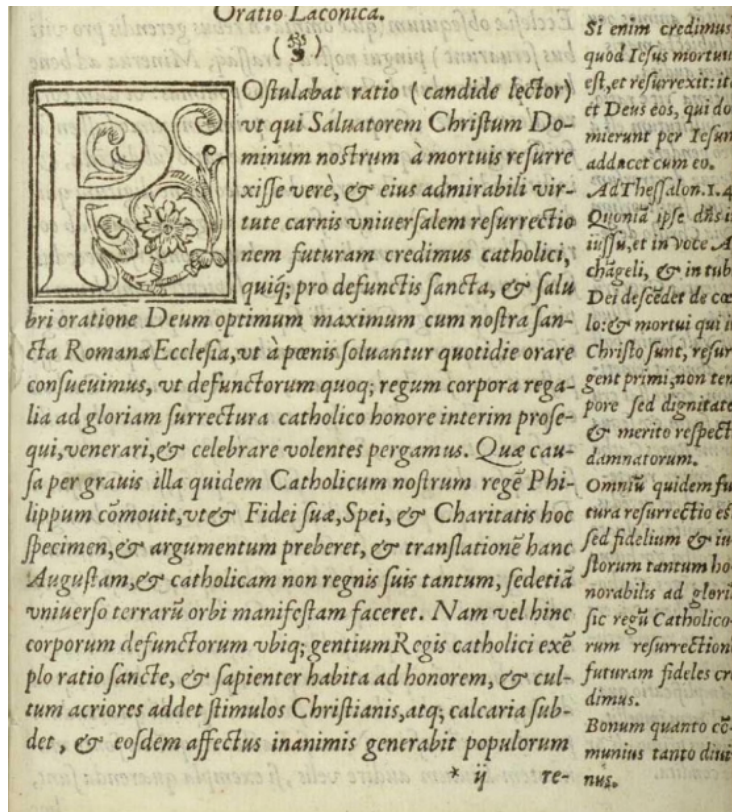 Oratio Laconica.
POstulabat ratio (candide lector)
vt qui Saluatorem Christum Do-
minum nostrum à mortuis resurre
xisse verè, & eius admirabili vir-
tute carnis vniuersalem resurrectio
nem futuram credimus catholici,
quiq; pro defunctis sancta, & salu
bri oratione Deum optimum maximum cum nostra san-
cta Romana Ecclesia, vt à pœnis soluantur quotidie orare
consueuimus, vt defunctorum quoq; regum corpora rega-
lia ad gloriam surrectura catholico honore interim prose-
qui, venerari, & celebrare volentes pergamus. Quæ cau-
sa per grauis illa quidem Catholicum nostrum regē Phi-
lippum cōmouit, vt & Fidei suæ, Spei, & Charitatis hoc
specimen, & argumentum preberet, & translationē hanc
Augustam, & catholicam non regnis suis tantum, sed etiā
vniuerso terrarū orbi manifestam faceret. Nam vel hinc
corporum defunctorum vbiq; gentium Regis catholici exē
plo ratio sancte, & sapienter habita ad honorem, & cul-
tum acriores addet stimulos Christianis, atq; calcaria sub-
det, & eosdem affectus inanimis generabit populorum
* ij re-
Si enim credimus
quod Iesus mortuu
est, et resurrexit: it
et Deus eos, qui do
mierunt per Iesum
adducet cum eo.
Ad Thessalon. 1. 4
Quoniā ipse dñs i
iussu, et in voce A
chāgeli, & in tub
Dei descēdet de cœ
lo: & mortui qui i
Christo sunt, resur
gent primi, non tem
pore sed dignitate
& merito respect
damnatorum.
Omniū quidem fu
tura resurrectio es
sed fidelium & iu
storum tantum ho
norabilis ad glori
sic regū Catholico
rum resurrection
futuram fideles cre
dimus.
Bonum quanto cō-
munius tanto diui
nus.